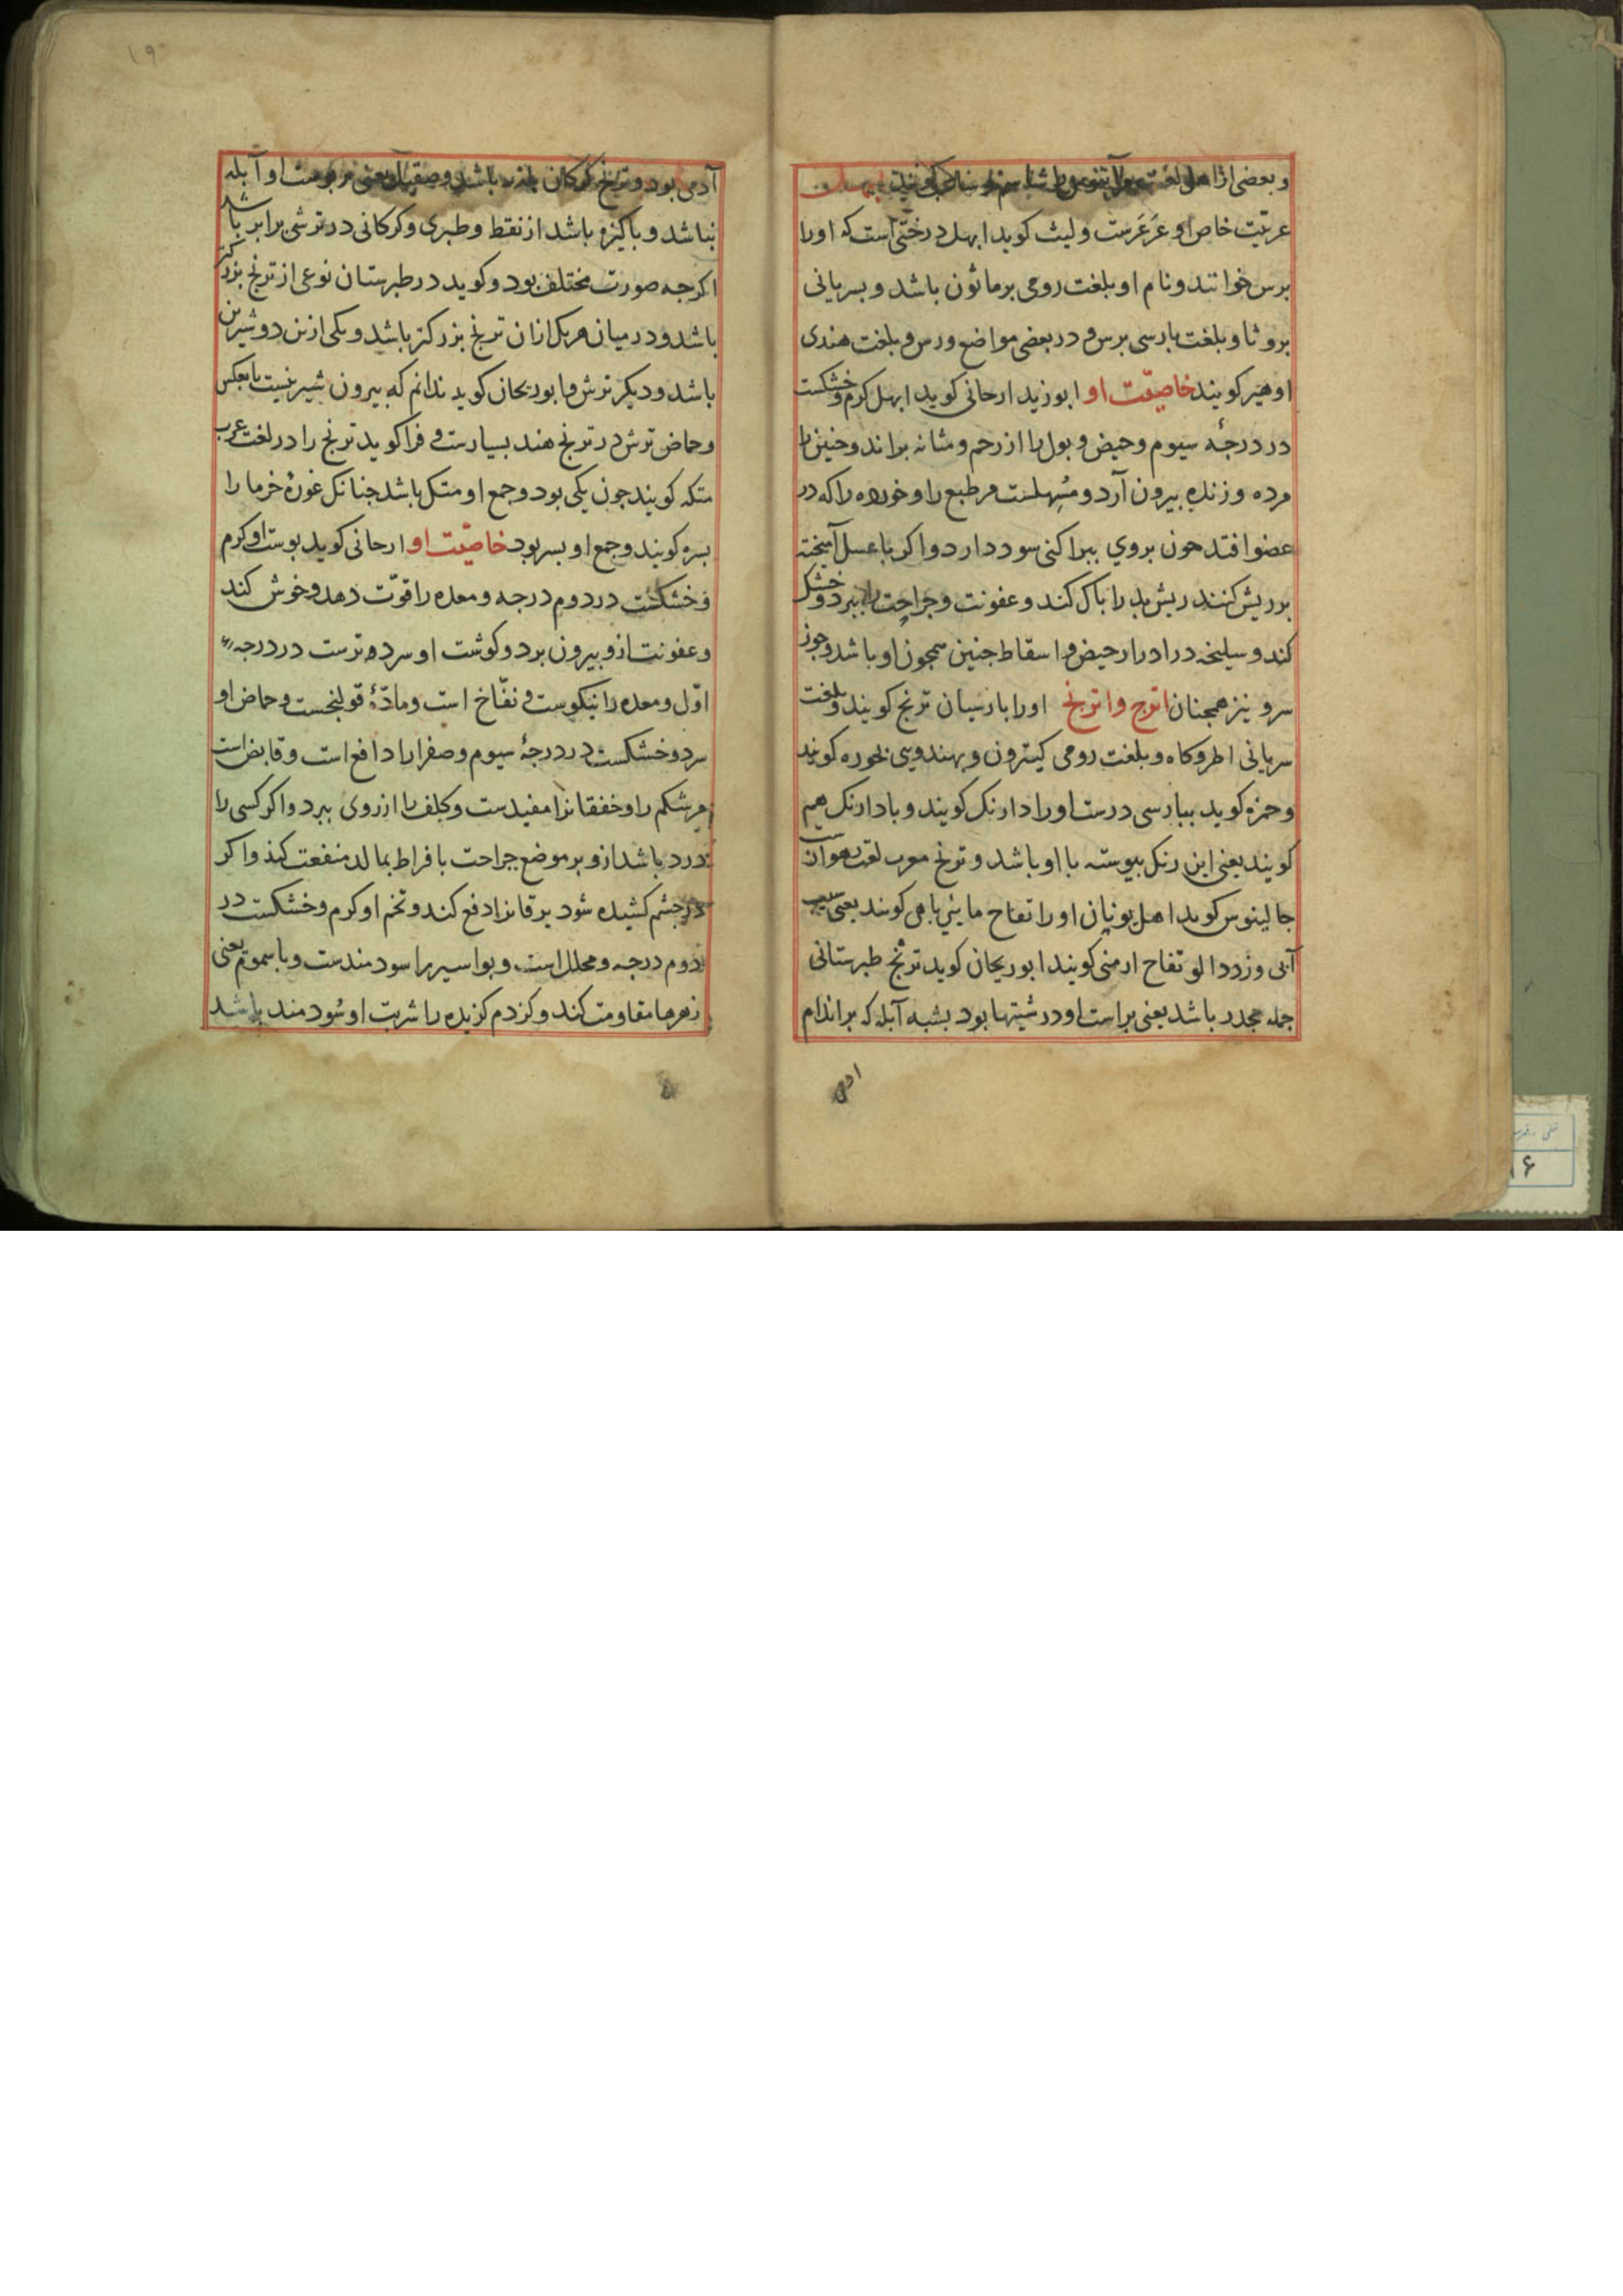 و بعضی از اهل لغت
عربیت خاص او عرعرست و لیث کوید ابهل درختی است که اورا
برس خوانند و نام او بلغت رومی برماثون باشد و بسریانی
بروثا و بلغت پارسی برس و در بعضی مواضع ورس و بلغت هندی
اوهیر کویند خاصیّت او ابوزید ارحانی کوید ابهل کرم و خشکست
در درجهٔ سیوم و حیض و بول را از رحم و مثانه براند و جنین را
مرده و زنده بیرون آرد و مُسهلست مر طبع را و خوره را که در
عضو افتد چون بروی بپراکنی سود دارد و اکر با عسل آمیخته
بر ریش کنند ریش بد را باک کند و عفونت و جراحت را ببرد و خشک
کند و سلیخه در ادرار حیض و اسقاط جنین همچون او باشد و جوز
سرو نیز همچنان اترج و اترنج اورا بارسیان ترنج کویند و بلغت
سریانی اطروکاه و بلغت رومی کیترون و بهندوی بخوره کویند
و حمزه کوید ببارسی درست اورا دارنک کویند و بادارنک هم
کویند یعنی این رنک بیوسته با او باشد و ترنج معرب لغت
جالینوس کوید اهل یونان اورا تفاح ماینی باهی کویند یعنی سیب
آبی و زردالو تفاح ارمنی کویند ابوریحان کوید ترنج طبرستانی
جمله مجدر باشد یعنی براست او درشتیها بود بشبه آبله که بر اندام
ادمی
۱۹
آدمی بود و ترنج کرکان باشد و صقیل یعنی بر بوست او آبله
نباشد و باکیزه باشد از نقط و طبری و کرکانی در ترشی برابر باشد
اکرجه صورت مختلف بود و کوید در طبرستان نوعی از ترنج بزرکتر
باشد و در میان هر یک ازان ترنج بزرکتر باشد و یکی ازین دو شیرین
باشد و دیکر ترش و ابوریحان کوید ندانم که بیرون شیرینست یا بعکس
و حماض ترش در ترنج هند بسیارست و فرا کوید ترنج را در لغت عرب
متکه کویند جون یکی بود و جمع او متک باشد جنانک غورهٔ خرما را
بسره کویند و جمع او بسر بود خاصیّت او ارحانی کوید بوست او کرم
و خشکست در دوم درجه و معده را قوّت دهد و خوش کند
و عفونت ازو بیرون برد و کوشت او سرد و ترست در درجهٔ
اوّل و معده را نیکوست و نفّاخ است و مادّهٔ قولنجست و حماض او
سرد و خشکست در درجهٔ سیوم و صفرا را دافع است و قابض است
مر شکم را و خفقانرا مفیدست و کلف را از روی ببرد و اکر کسی را
درد باشد ازو بر موضع جراحت بافراط بمالد منفعت کند و اکر
در جشم کشیده شود یرقانرا دفع کند و تخم او کرم و خشکست در
دوم درجه و محلل است و بواسیر را سودمندست و با سموم یعنی
زهرها مقاومت کند و کزدم کزیده را شربت او سُودمند باشد
۱۶